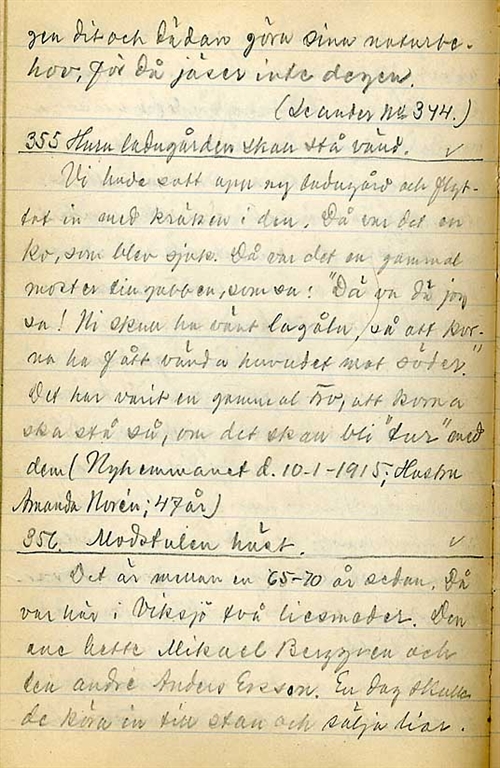 gen dit och dädan göra sina naturbe-
hov, för då jäser inte degen.
(Leander No 344.)
355 Huru ladugården skall stå vänd. ✓
Vi hade satt upp ny ladugård och flyt-
tat in med kräken i den. Då var det en
ko, som blev sjuk. Då var det en gammal
moster till gubben, som sa: "Dä va dä jag
sa! Ni skull ha vänt lagåln, så att kor-
na ha fått vända huvudet mot söder."
Det har varit en gammal tro, att korna
ska stå så, om det skall bli "tur" med
dem (Nyhemmanet d. 10-1-1915; Hustru
Amanda Norén; 47 år)
356. Modstulen häst. ✓
Det är mellan en 65-70 år sedan. Då
var här i Viksjö två liesmeder. Den
ene hette Mikael Berggren och
den andre Anders Ersson. En dag skulle
de köra in till stan och sälja liar.